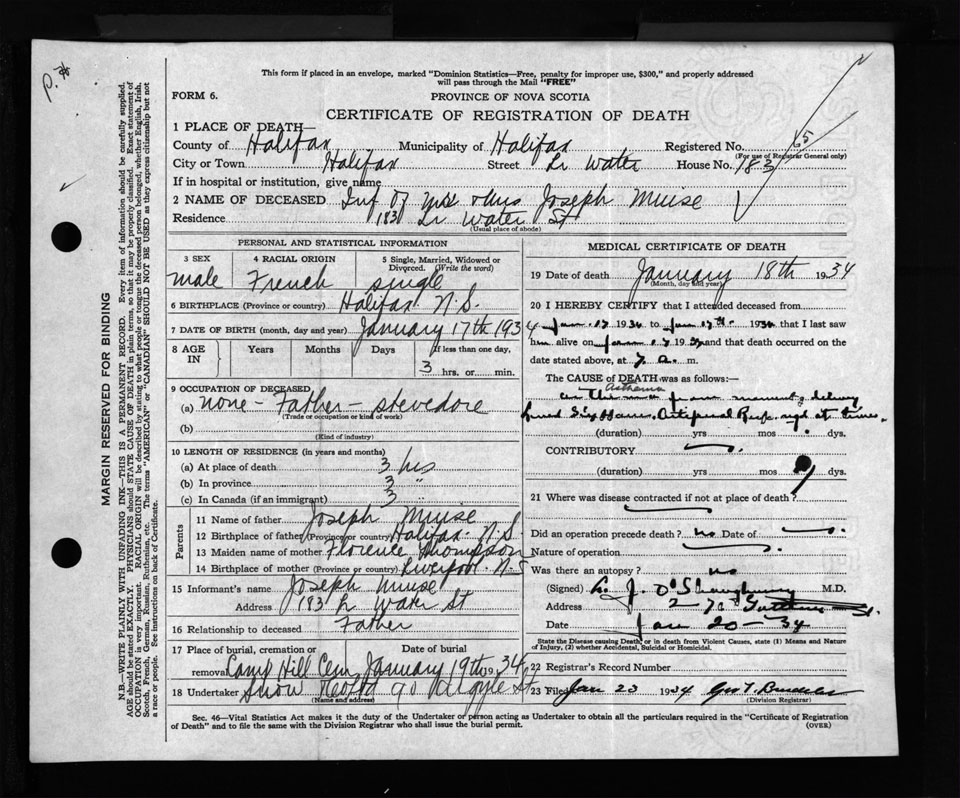 This form if placed in an envelope, marked "Dominion Statistics—Free, penalty for improper use, $300," and properly addressed
will pass through the Mail "FREE"
FORM 6.
PROVINCE OF NOVA SCOTIA
CERTIFICATE OF REGISTRATION OF DEATH
1 PLACE OF DEATH—
County of Halifax Municipality of Halifax Registered No. 65
(For use of Registrar General only)
City or Town Halifax Street Lr Water House No. 183
If in hospital or institution, give name
2 NAME OF DECEASED Inf of Mr & Mrs Joseph Muise
Residence 183 Lr Water St
(Usual place of abode)
MARGIN RESERVED FOR BINDING
N.B.—WRITE PLAINLY WITH UNFADING INK—THIS IS A PERMANENT RECORD. Every item of information should be carefully supplied.
AGE should be stated EXACTLY. PHYSICIANS should STATE CAUSE OF DEATH in plain terms, so that it may be properly classified. Exact statement of
OCCUPATION is very important. RACIAL ORIGIN will be described by stating to what people or tongue the deceased person belonged, whether English, Irish,
Scotch, French, German, Russian, Ruthenian, etc. The terms "AMERICAN" or "CANADIAN" SHOULD NOT BE USED as they express citizenship but not
a race or people. See instructions on back of Certificate.
PERSONAL AND STATISTICAL INFORMATION
3 SEX
4 RACIAL ORIGIN
5 Single, Married, Widowed or
Divorced. (Write the word)
male French single
6 BIRTHPLACE (Province or country) Halifax N.S.
7 DATE OF BIRTH (month, day and year) January 17th 1934
8 AGE IN
Years
Months
Days
If less than one day,
3 hrs. or min.
9 OCCUPATION OF DECEASED
(a) none - Father - stevedore
(Trade or occupation or kind of work)
(b)
(Kind of industry)
10 LENGTH OF RESIDENCE (in years and months)
(a) At place of death 3 hrs
(b) In province 3 "
(c) In Canada (if an immigrant) 3
Parents
11 Name of father Joseph Muise
12 Birthplace of father (Province or country) Halifax N.S.
13 Maiden name of mother Florence Thompson
14 Birthplace of mother (Province or country) Liverpool N.S
15 Informant's name Joseph Muise
Address 183 L Water St
16 Relationship to deceased Father
17 Place of burial, cremation or removal Date of burial
Camp Hill Cem January 19th 1934
18 Undertaker Snow 90 Argyle St
(Name and address)
MEDICAL CERTIFICATE OF DEATH
19 Date of death January 18th 1934
(Month, day and year)
20 I HEREBY CERTIFY that I attended deceased from
Jan. 17 1934 to Jan 17th 1934 that I last saw
him alive on Jan 17 1934 and that death occurred on the
date stated above, at 7 a. m.
The CAUSE of DEATH was as follows:—
from moment of delivery
lived Six Hours. at times.
(duration) yrs mos. dys.
CONTRIBUTORY
(duration) yrs mos. dys.
21 Where was disease contracted if not at place of death?
Did an operation precede death? no Date of
Nature of operation
Was there an autopsy? no
(Signed) J. O'Shaughnessy M.D.
Address
Date Jan 20-34
State the Disease causing Death, or in death from Violent Causes, state (1) Means and Nature
of Injury, (2) whether Accidental, Suicidal or Homicidal.
22 Registrar's Record Number
23 Filed Jan 23 1934
(Division Registrar)
Sec. 46—Vital Statistics Act makes it the duty of the Undertaker or person acting as Undertaker to obtain all the particulars required in the "Certificate of Registration
of Death" and to file the same with the Division Registrar who shall issue the burial permit.
(OVER)